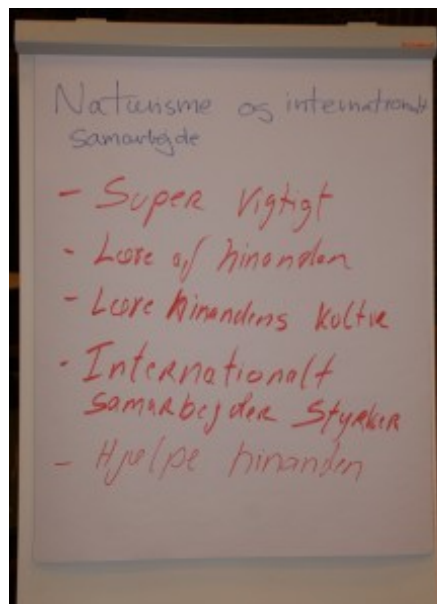 Naturisme og internationalt
samarbejde
- Super vigtigt
- Lære af hinanden
- Lære hinandens kultur
- Internationalt
samarbejder styrker
- Hjælpe hinanden